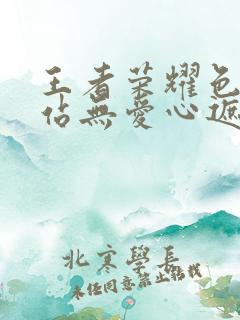 王者荣耀色
佔無愛心遮
北寒學長
未经同意禁止转载